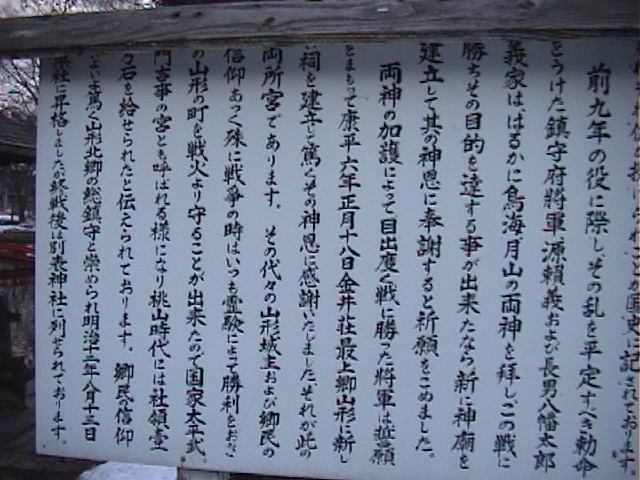 国史に記されております。
前九年の役に際し、その乱を平定すべき勅命
をうけた鎮守府将軍源頼義および長男八幡太郎
義家ははるかに鳥海、月山の両神を拝し、この戦に
勝ちその目的を達する事が出来たなら新に神廟を
建立して其の神恩に奉謝すると祈願をこめました。
両神の加護によって目出度く戦に勝った将軍は誓願
をまもって康平六年正月十八日金井荘最上郷山形に新し
祠を建立し篤くその神恩に感謝いたしました、それが此の
両所宮であります。その代々の山形城主および郷民の
信仰あつく殊に戦争の時はいつも霊験によって勝利をおさ
の山形の町を戦火より守ることが出来たので国家太平武
門吉事の宮とも呼ばれる様になり桃山時代には社領壹
万石を給せられたと伝えられております。郷民信仰
いよいよ篤く山形北郷の総鎮守と崇められ明治十二年八月十三日
県社に昇格しましたが終戦後は別表神社に列せられております。